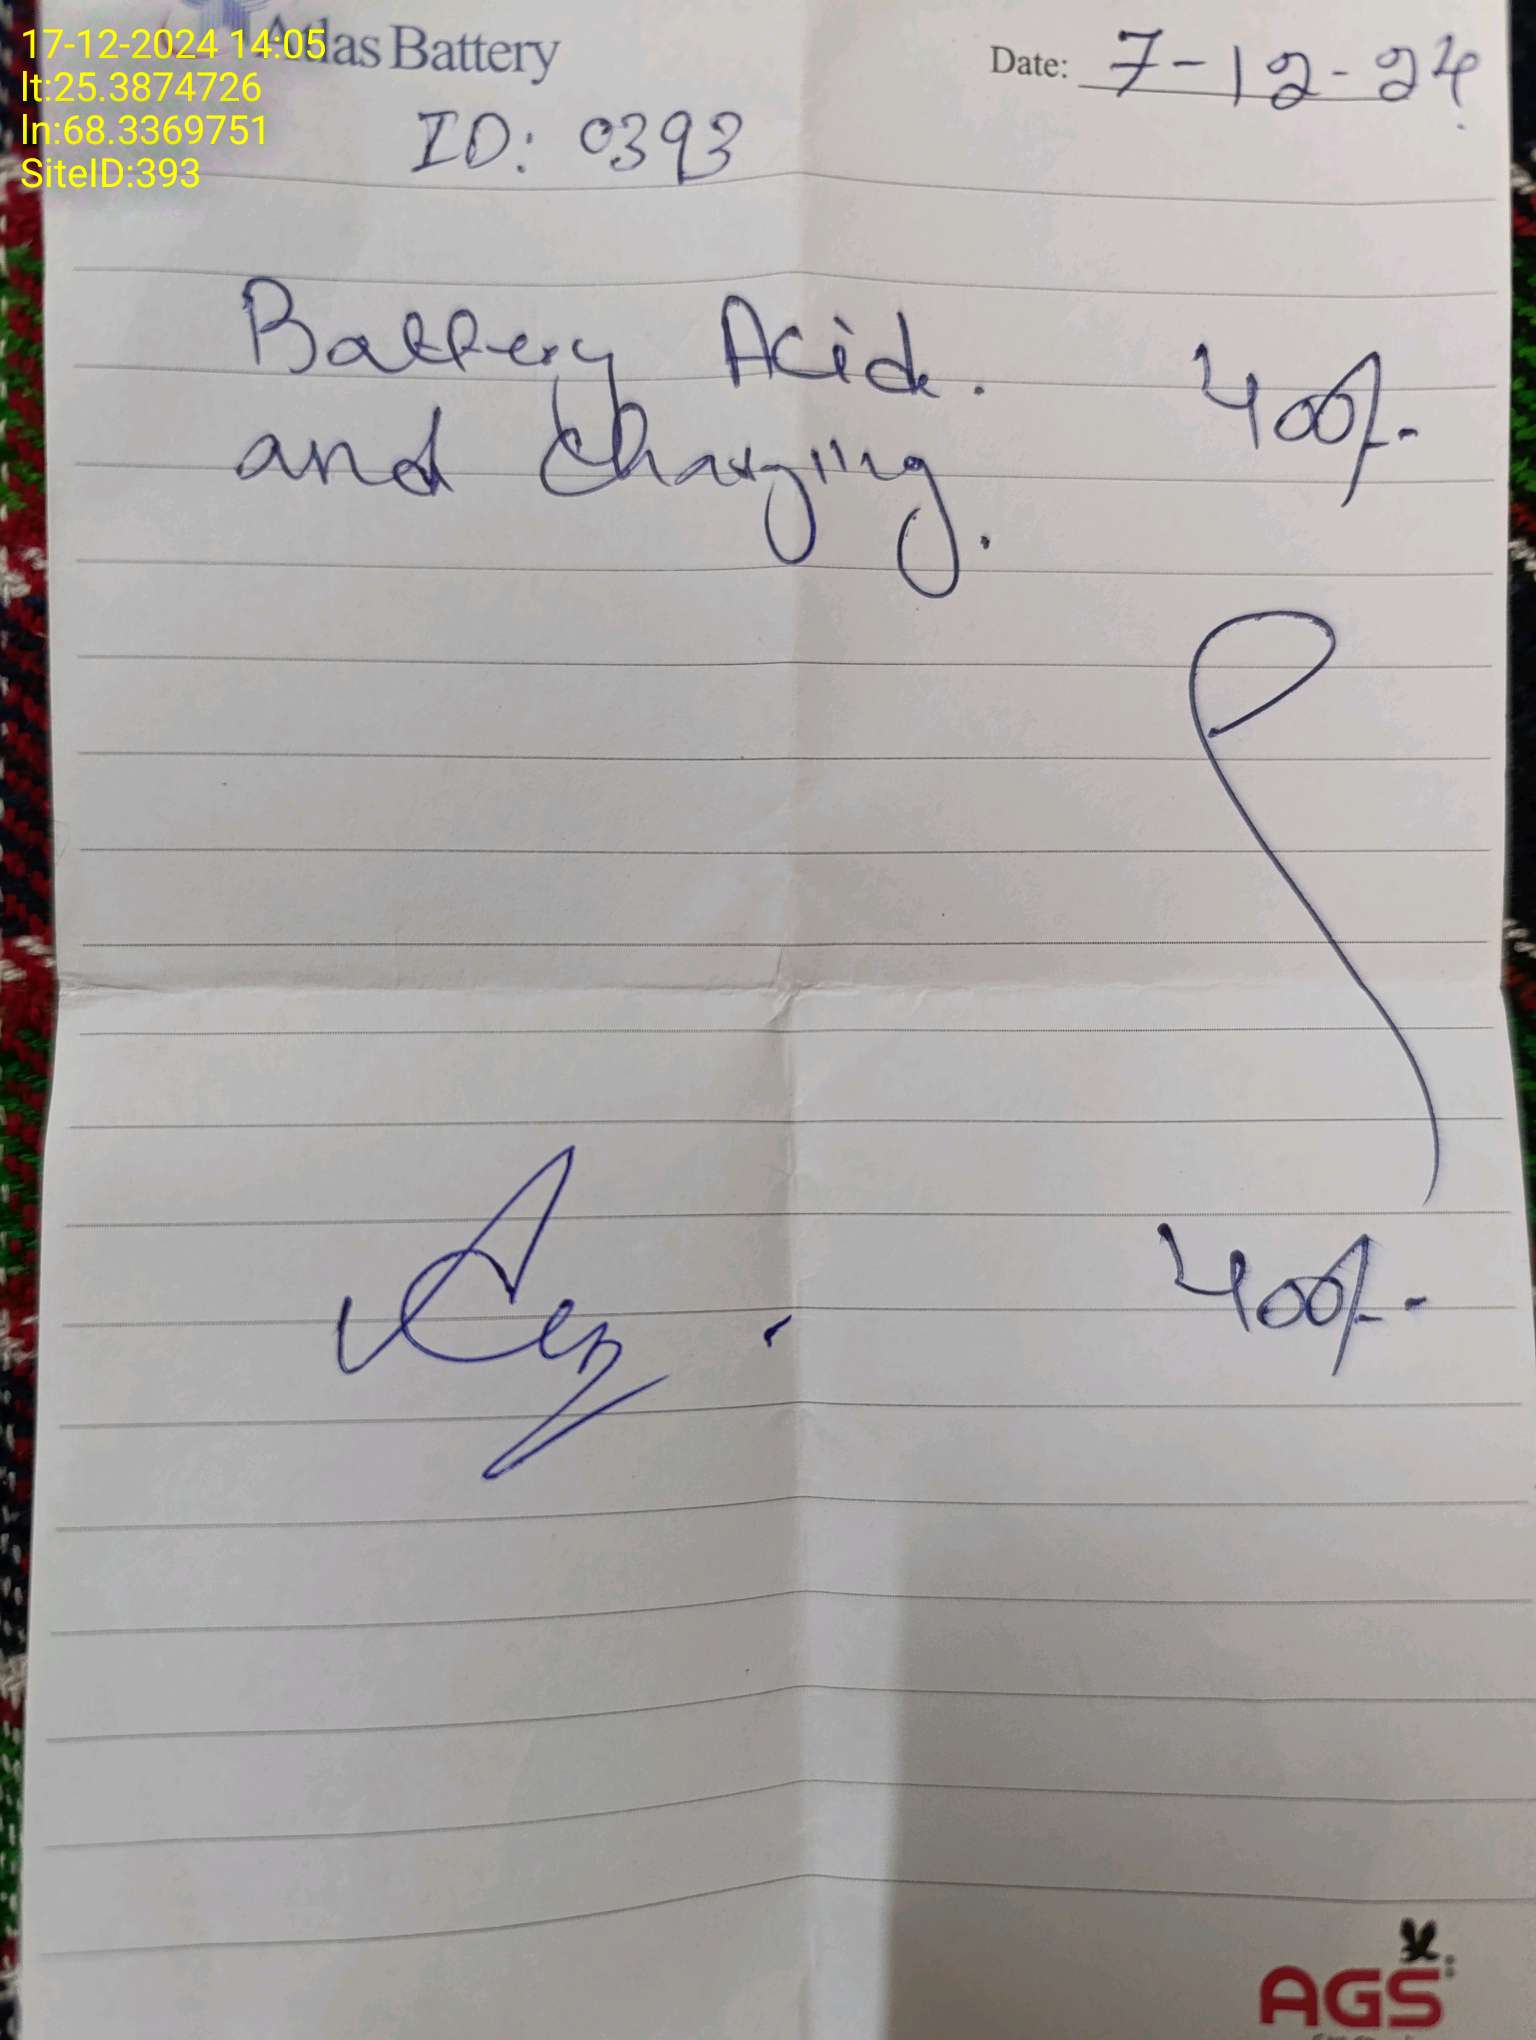 17-12-2024 14:05
lt:25.3874726
ln:68.3369751
SiteID:393
Atlas Battery
Date: 7-12-24
ID: 0393
Battery Acid. 400/-
and Charging.
400/-
AGS